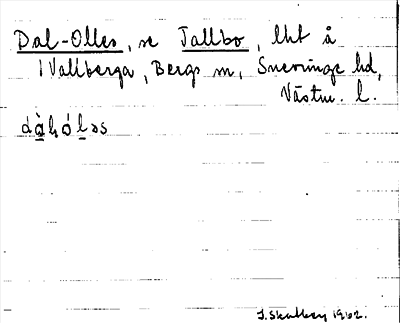 Dal-Olles, se Tallbo, lht å
1 Vallberga, Bergs sn, Snevringe hd,
Västm. l.
dàɧóləs
I. Skalberg 1962.